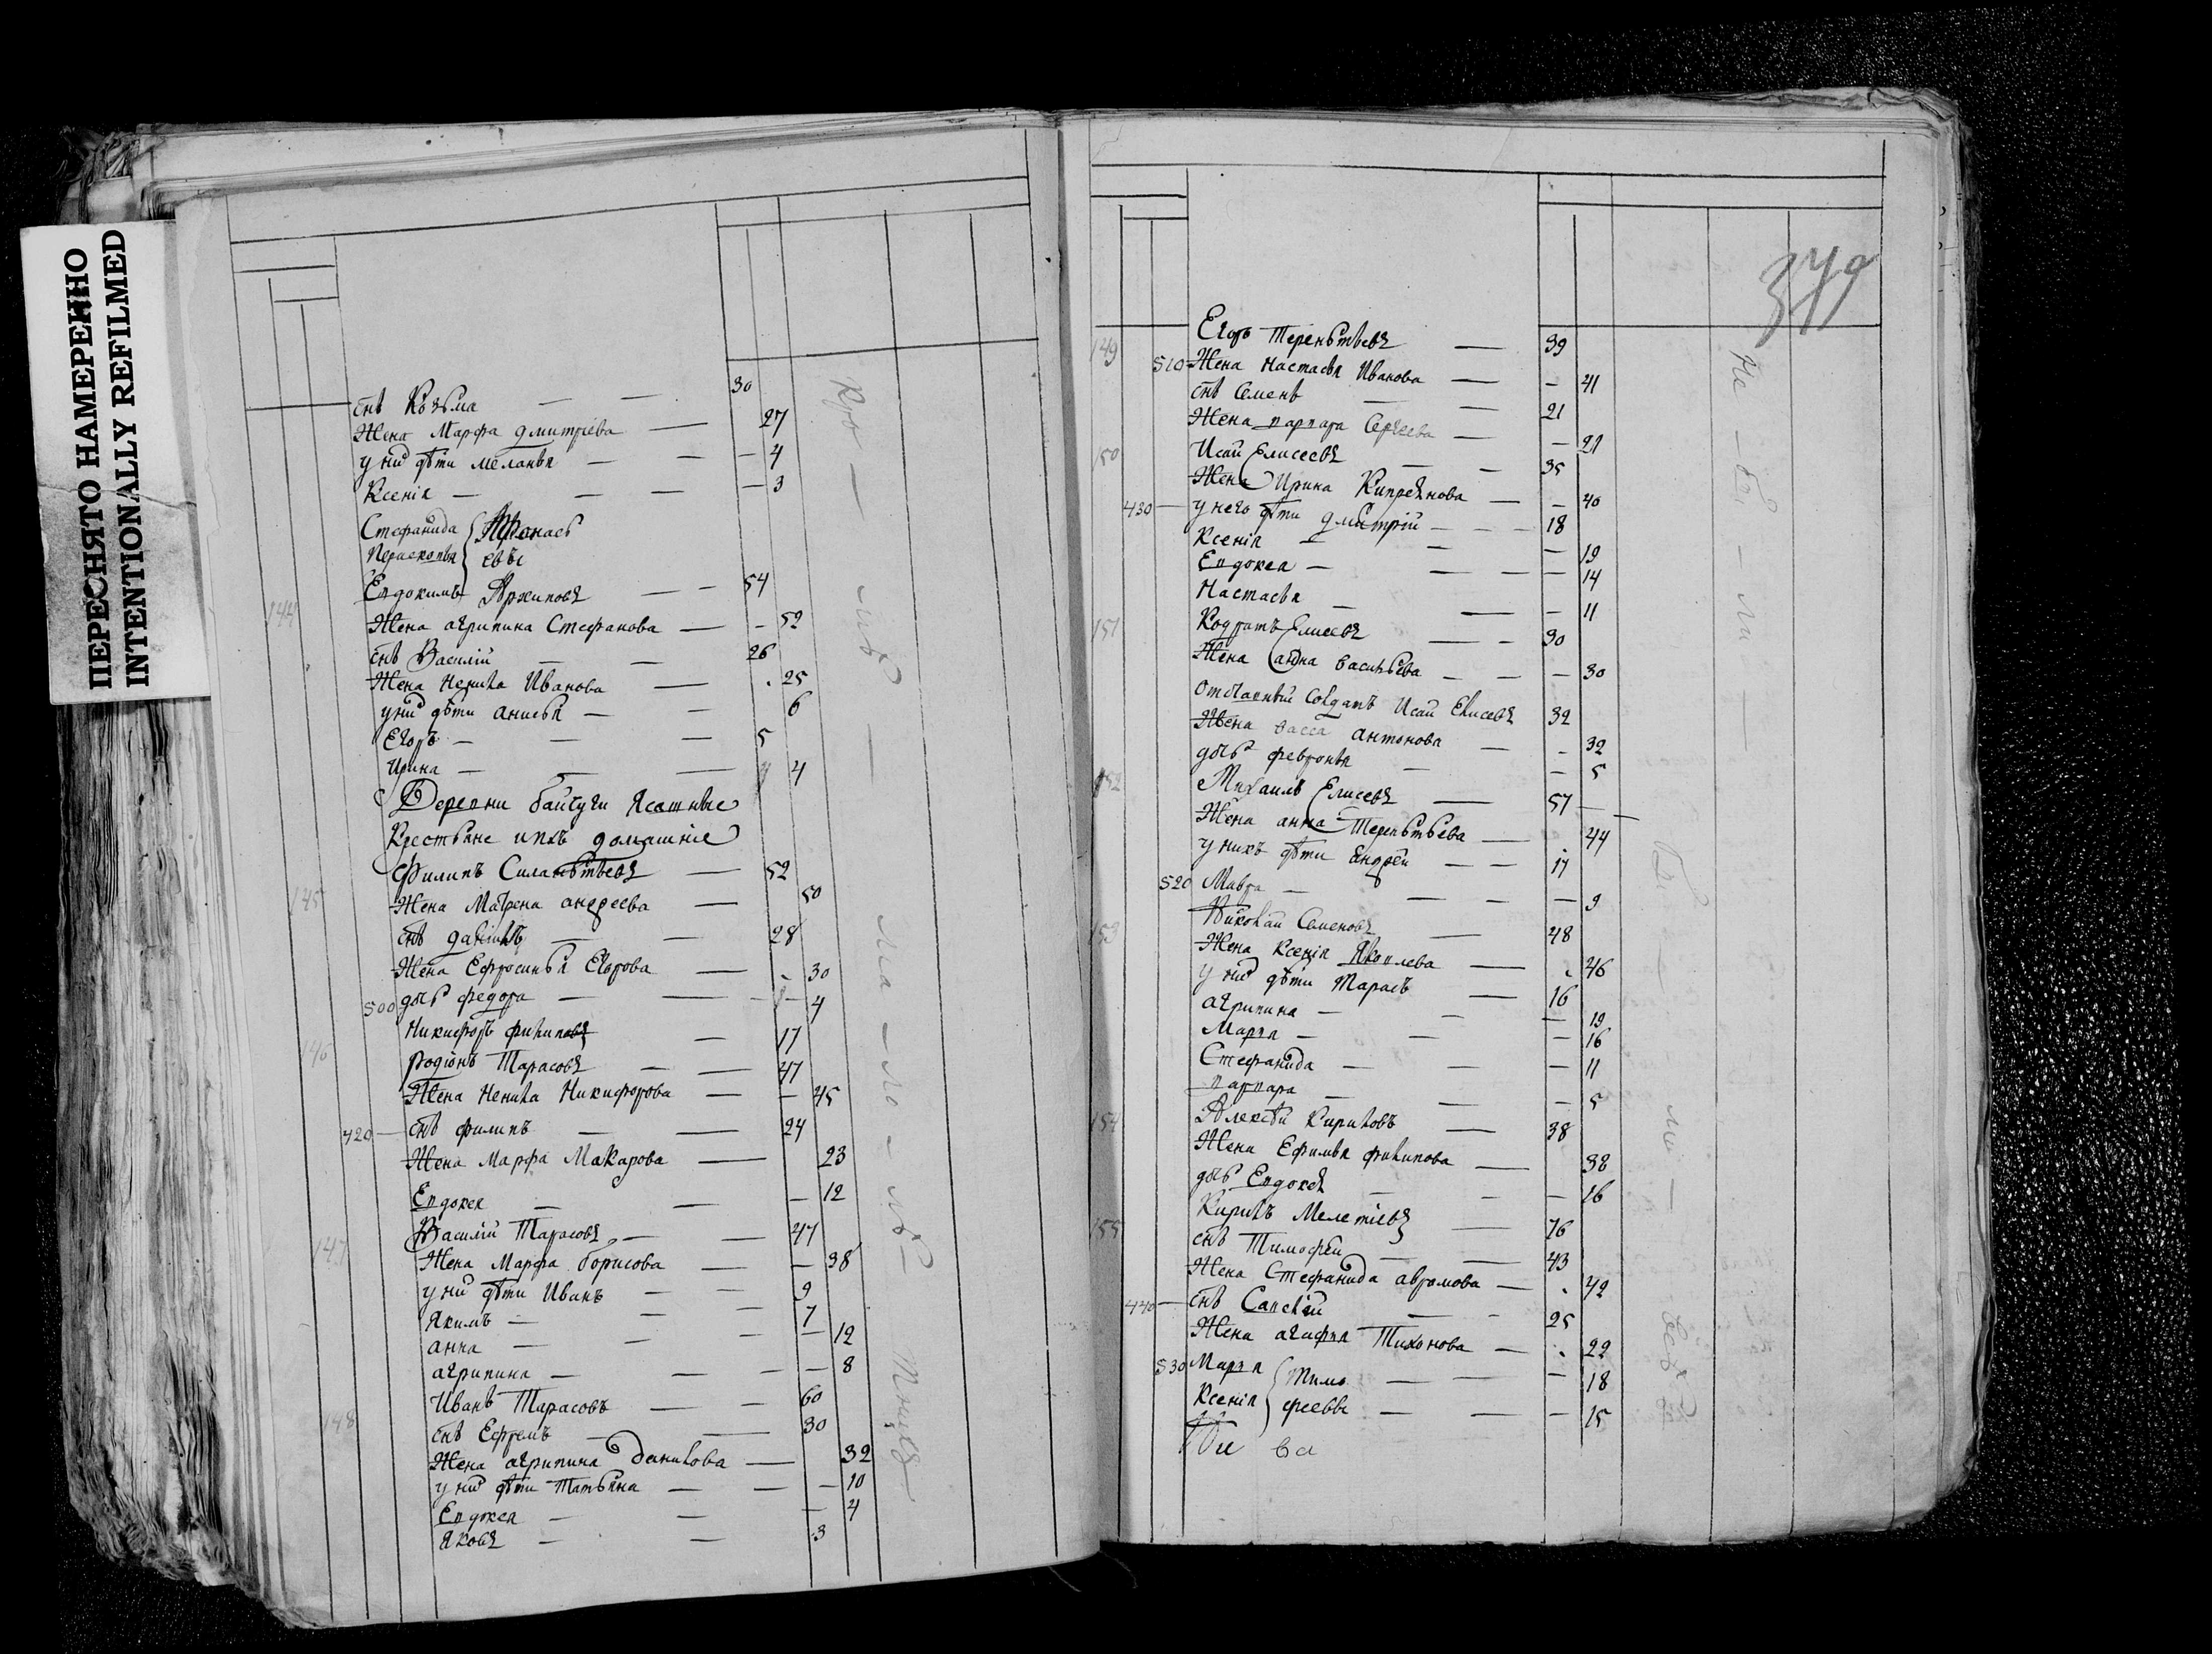 ПЕРЕСНЯТО НАМЕРЕННО
INTENTIONALLY REFILMED
снъ Козьма — — 30
Жена Марфа Дмитріева — 27
у ни͠ дѣти Меланья — — — 4
Ксенія — — — — 3
Стефанида } Афонась
Перасковья } евы
144 Евдокимъ Архиповъ — — 54
Жена агрипина Стефанова — — 52
снъ Василій — — 26
Жена Ненила Иванова — 25
у ни͠ дѣти анисья — — 6
Егоръ — — — 5
Ирина — — — 4
Деревни Байчуги Ясашные
Крестьяне и ихъ домашніе
145 Филипъ Силантьевъ — 52
Жена Матрена андреева — 50
снъ данилъ — — 28
Жена Ефросинья Егорова — 30
500 дчь федора — — — 4
Никифоръ филиповъ — 17
146 Родіонъ Тарасовъ — — 47
Жена Ненила Никифорова — — 45
420 — снъ филипъ — — 24
Жена Марфа Макарова — 23
Евдокея — — — 12
147 Василій Тарасовъ — — 47
Жена Марфа борисова — — 38
у ни͠ дѣти Иванъ — — 9
Якимъ — — — 7
анна — — — — 12
агрипина — — — — 8
148 Иванъ Тарасовъ — — 60
снъ Ефремъ — — 30
Жена агрипина Данилова — 32
у ни͠ дѣти Татьяна — — — 10
Евдокея — — — 4
Яковъ — — 3
379
149 Егоръ Терентьевъ — 39
510 Жена Настасья Иванова — — 41
снъ Семенъ — — 21
Жена варвара Сергеева — — 21
150 Исай Елисеевъ — — 35
Жена Ирина Кипреянова — — 40
430 — у него дѣти дмитрій — — — 18
Ксенія — — — 19
Евдокея — — — — 14
Настасья — — — 11
151 Кодратъ Елисеевъ — — 30
Жена анна васильева — — — 30
Отставный Солдатъ Исай Елисевъ 32
Жена васса антонова — — 32
дчь февронья — — 5
152 Михаилъ Елисевъ — 57
Жена анна Терентьева — 44
у нихъ дѣти андрѣй — — 17
520 Мавра — — — — 9
153 Николай Семеновъ — 48
Жена Ксенія Яковлева — 46
у ни͠ дѣти Тарасъ — 16
агрипина — — — 19
Марья — — — 16
Стефанида — — — 11
варвара — — — 5
154 Алексѣй Кириловъ — 38
Жена Ефимья филипова — 38
дчь Евдокея — — — 16
155 Кирилъ Мелетіевъ — 76
снъ Тимофѣй — — 43
Жена Стефанида авромова — 42
440 — снъ Савелій — — 25
Жена агафья Тихонова — 22
530 Марья } Тимо — — — 18
Ксенія } феевы — — — 15